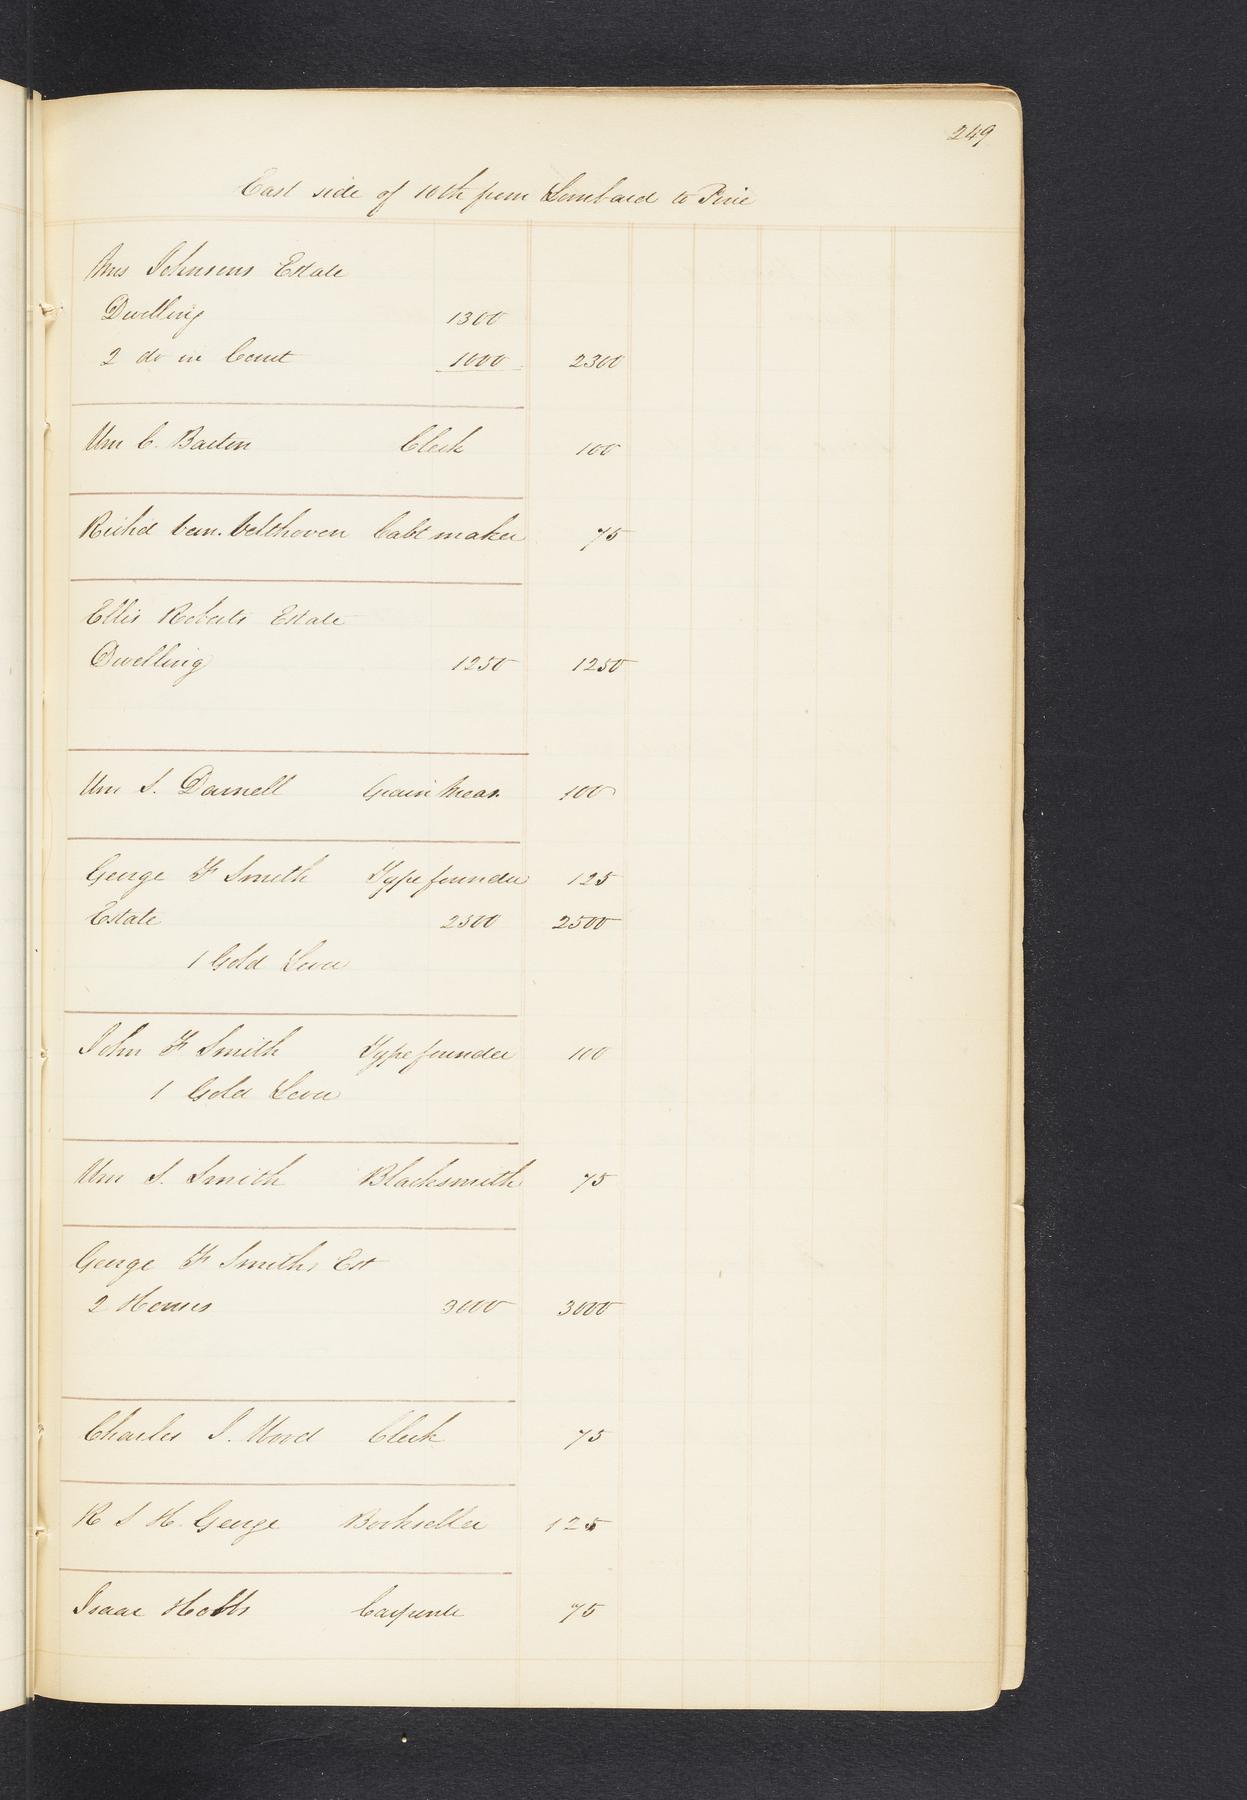 249
East side of 10th from Lombard to Pine
Mrs Johnsons Estate
Dwelling 1300
2 do in Court 1000 2300
Wm C. Barton Clerk 100
Richd Velthoven Cabt maker 75
Ellis Roberts Estate
Dwelling 1250 1250
Wm S. Darnell Grain Meas. 100
George F Smith Typefounder 125
Estate 2500 2500
1 Gold Lever
John F Smith Typefounder 100
1 Gold Lever
Wm S. Smith Blacksmith 75
George F Smiths Est
2 Houses 3000 3000
Charles S. Wood Clerk 75
R S H. George Bookseller 125
Isaac Hobbs Carpenter 75